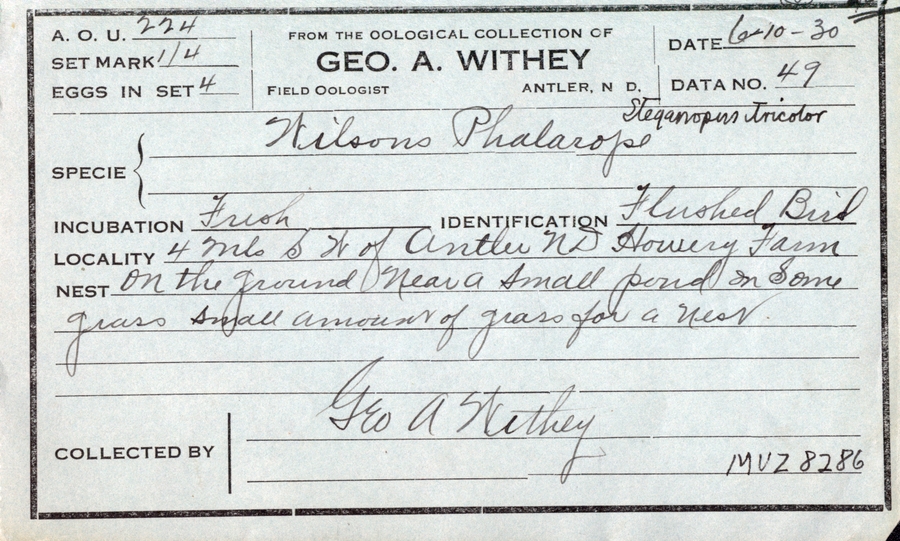 A. O. U. 224
SET MARK 1/4
EGGS IN SET 4
FROM THE OOLOGICAL COLLECTION OF
GEO. A. WITHEY
FIELD OOLOGIST ANTLER, N D.
DATE 6-10-30
DATA NO. 49
Steganopus tricolor
SPECIE Wilsons Phalarope
INCUBATION Fresh IDENTIFICATION Flushed Bird
LOCALITY 4 Mls S W of Antler ND Howery Farm
NEST On the ground Near a small pond in Some
grass small amount of grass for a Nest.
Geo A Withey
COLLECTED BY
MVZ 8286